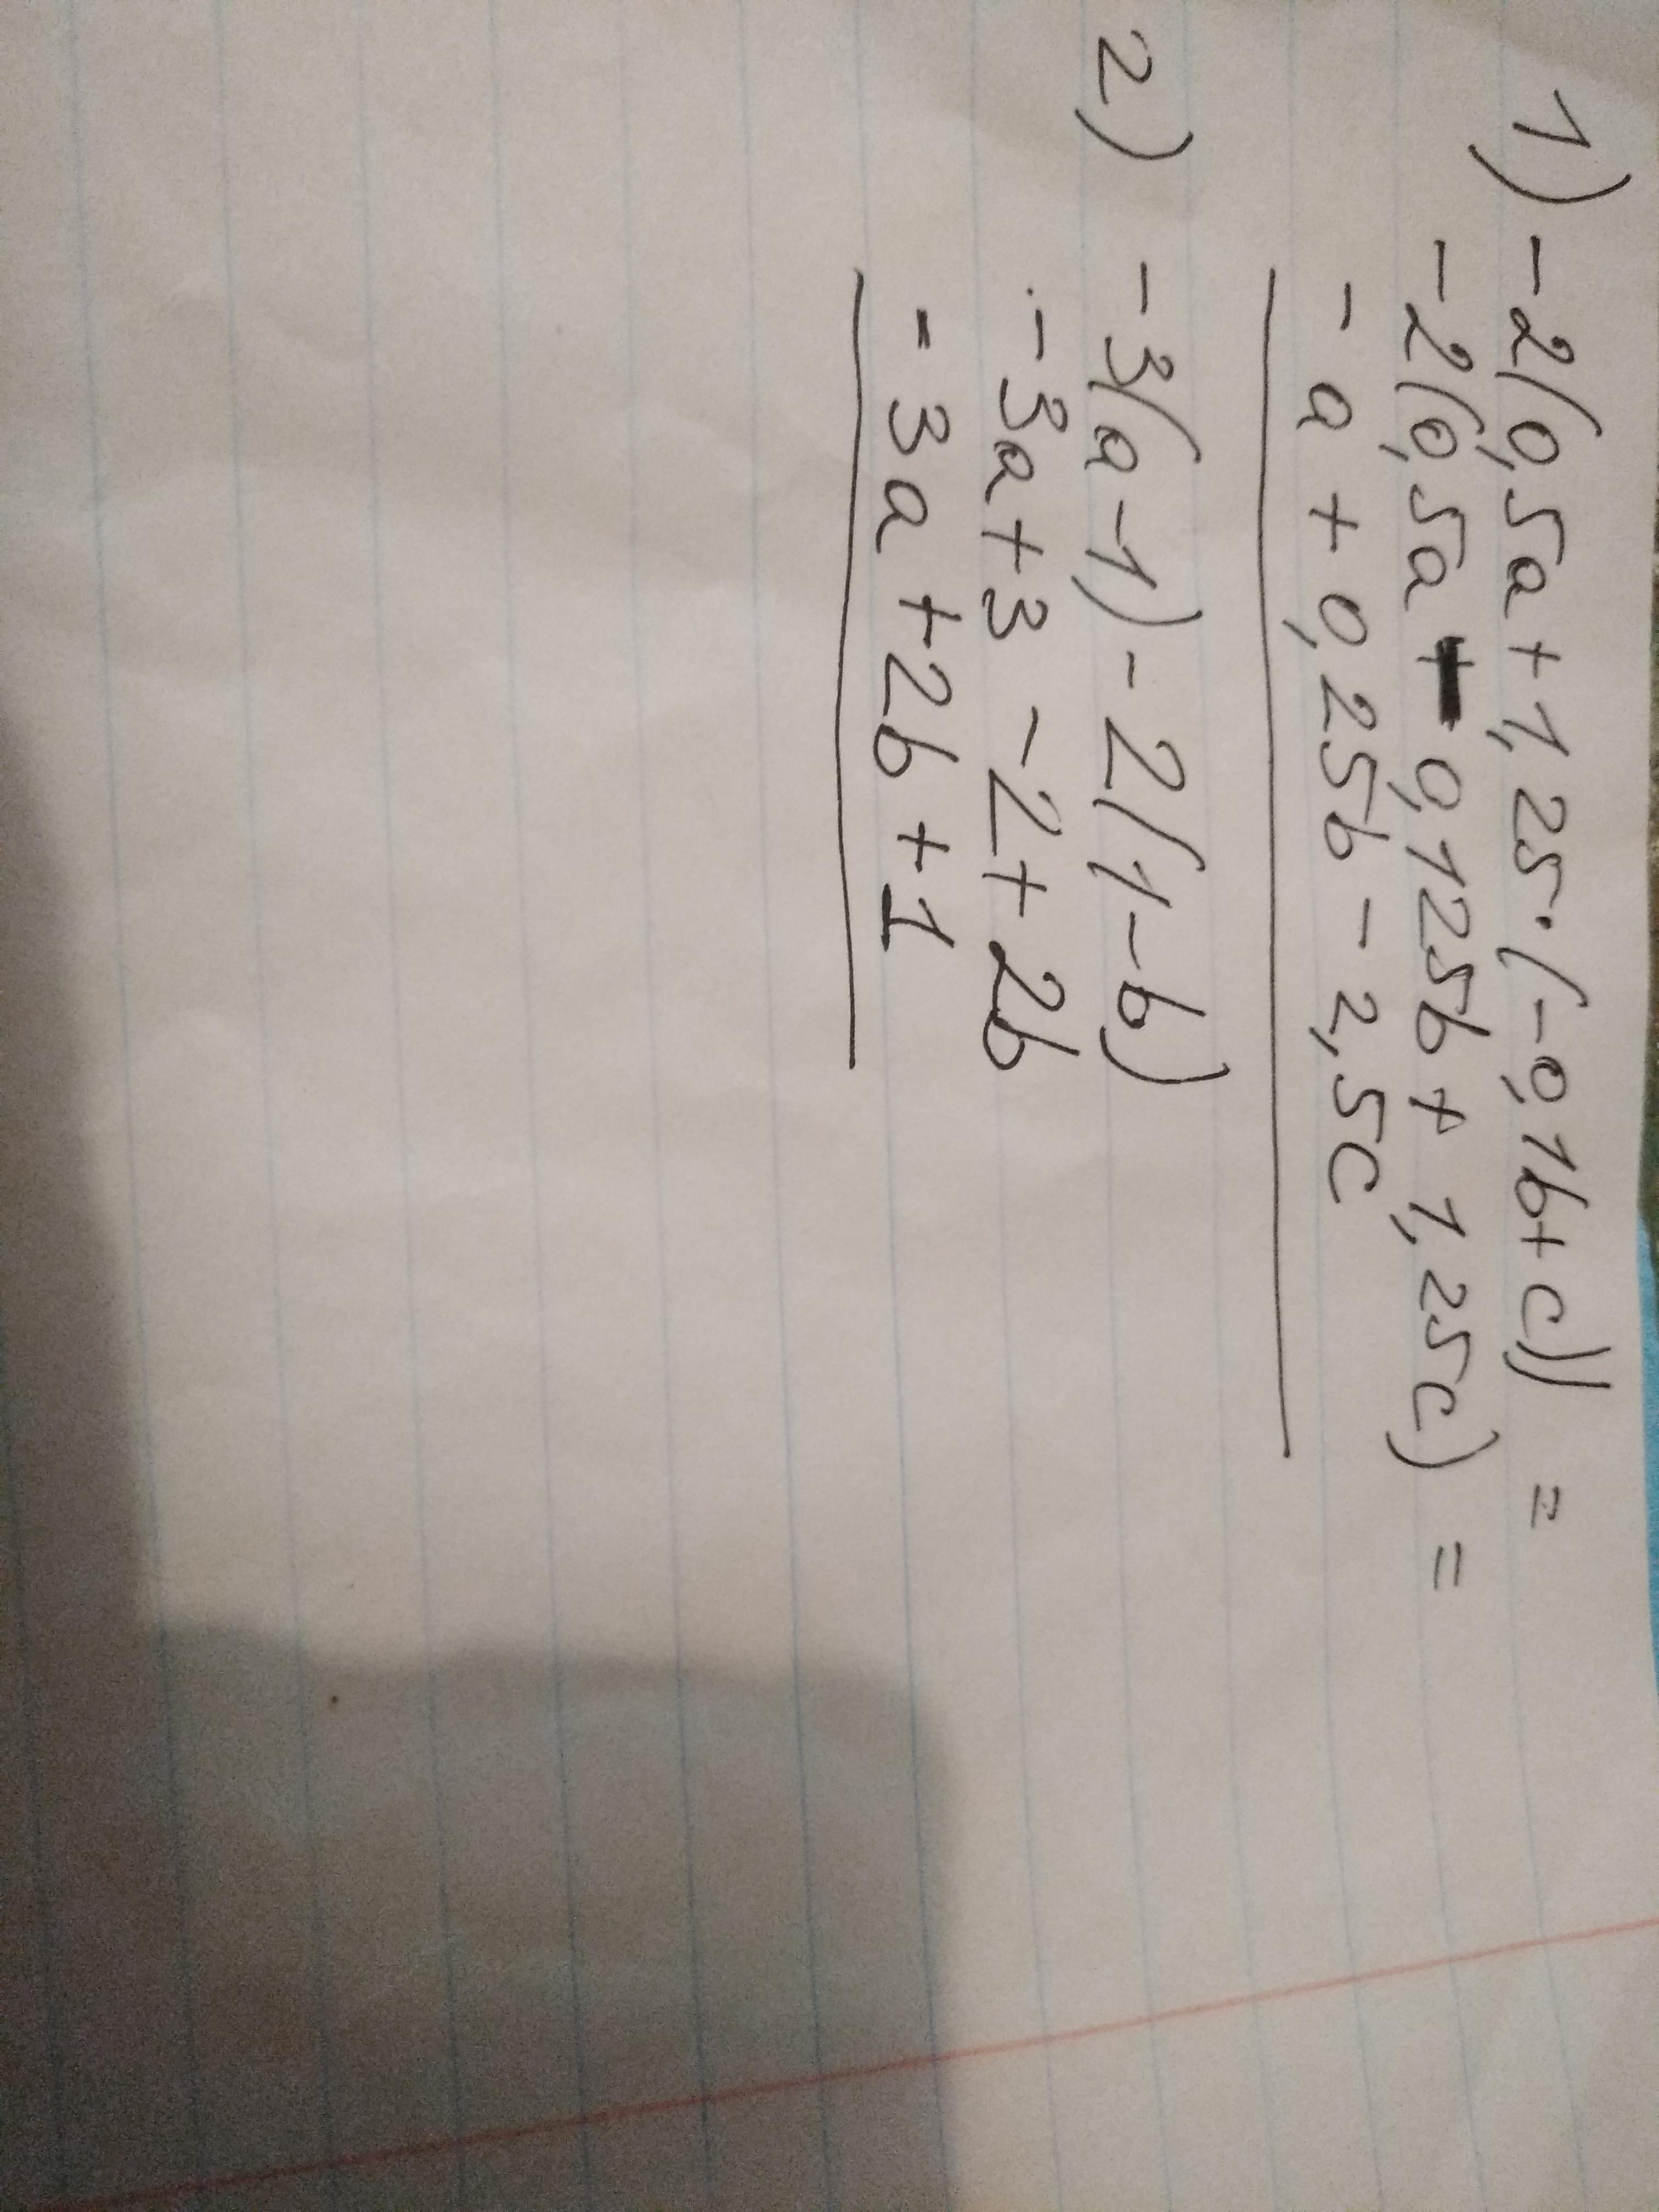 1) -2(0,5a + 1,25·(-0,1b+c)) =
-2(0,5a - 0,125b + 1,25c) =
- a + 0,25b - 2,5c
2) -3(a-1) - 2(1-b)
-3a+3 -2+ 2b
- 3a +2b +1